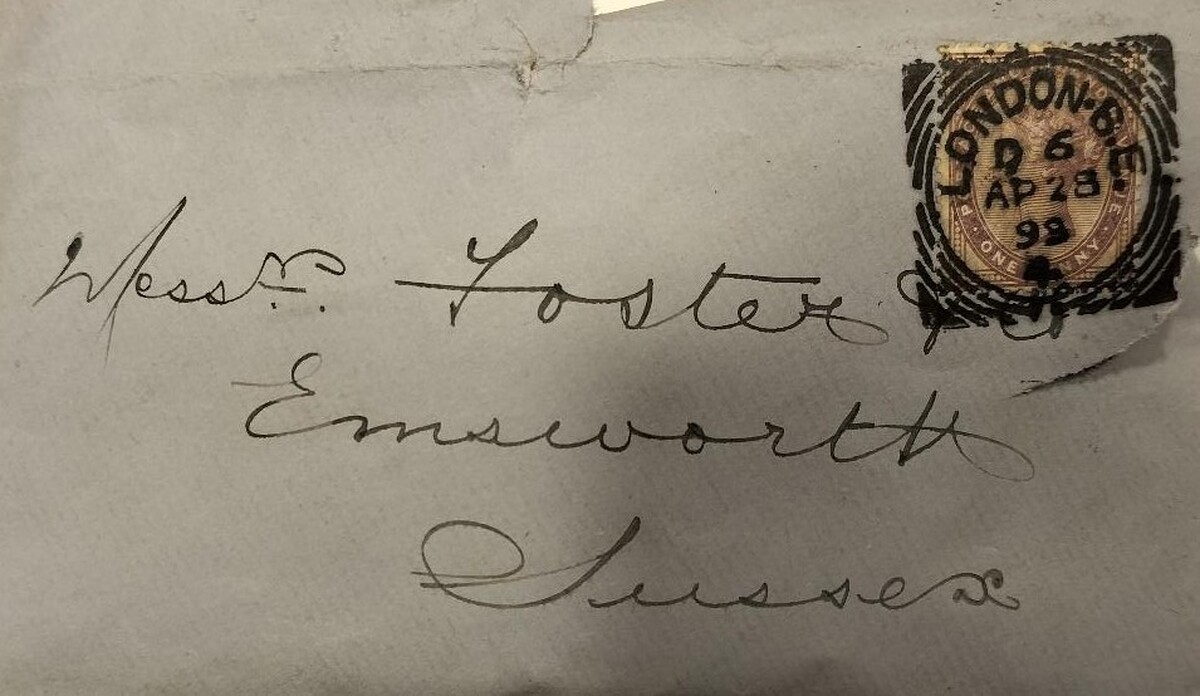 LONDON·S.E.
D 6
AP 28
93
4
ONE PENNY
Messrs. Foster & Co
Emsworth
Sussex